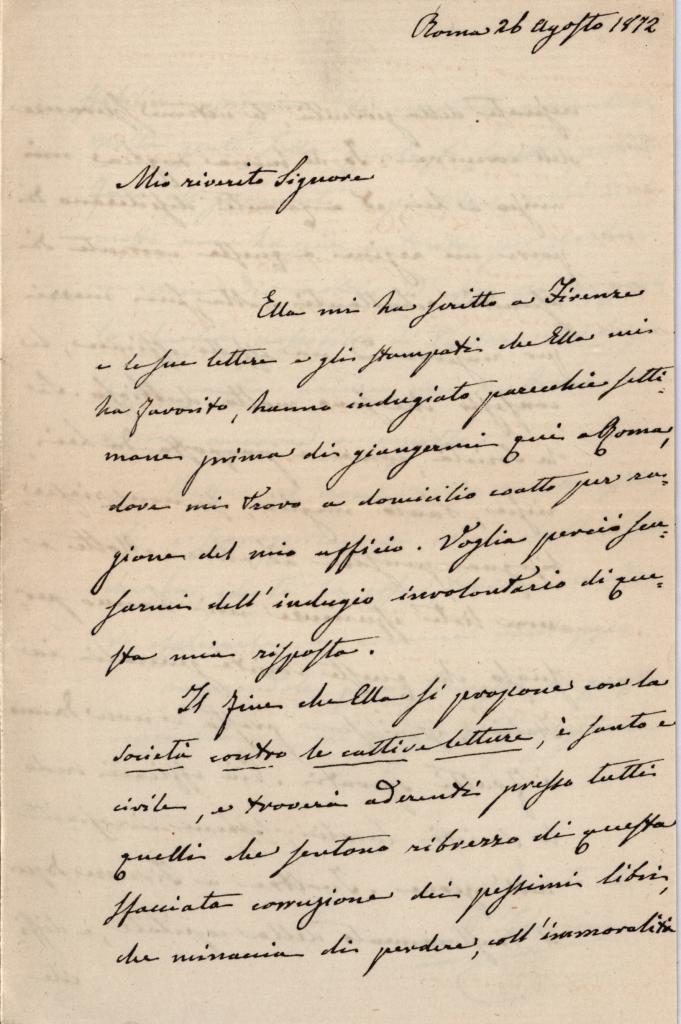 Roma 26 Agosto 1872
Mio riverito Signore
Ella mi ha scritto a Firenze
e le sue lettere e gli stampati che Ella mi
ha favorito, hanno indugiato parecchie setti-
mane prima di giungermi qui a Roma,
dove mi trovo a domicilio coatto per ra-
gione del mio ufficio. Voglia perciò scu-
sarmi dell' indugio involontario di que-
sta mia risposta.
Il fine che Ella si propone con la
società contro le cattive letture, è santo e
civile, e troverà aderenti presso tutti
quelli che sentono ribrezzo di questa
sfacciata corruzione dei pessimi libri,
che minaccia di perdere, coll' immoralità